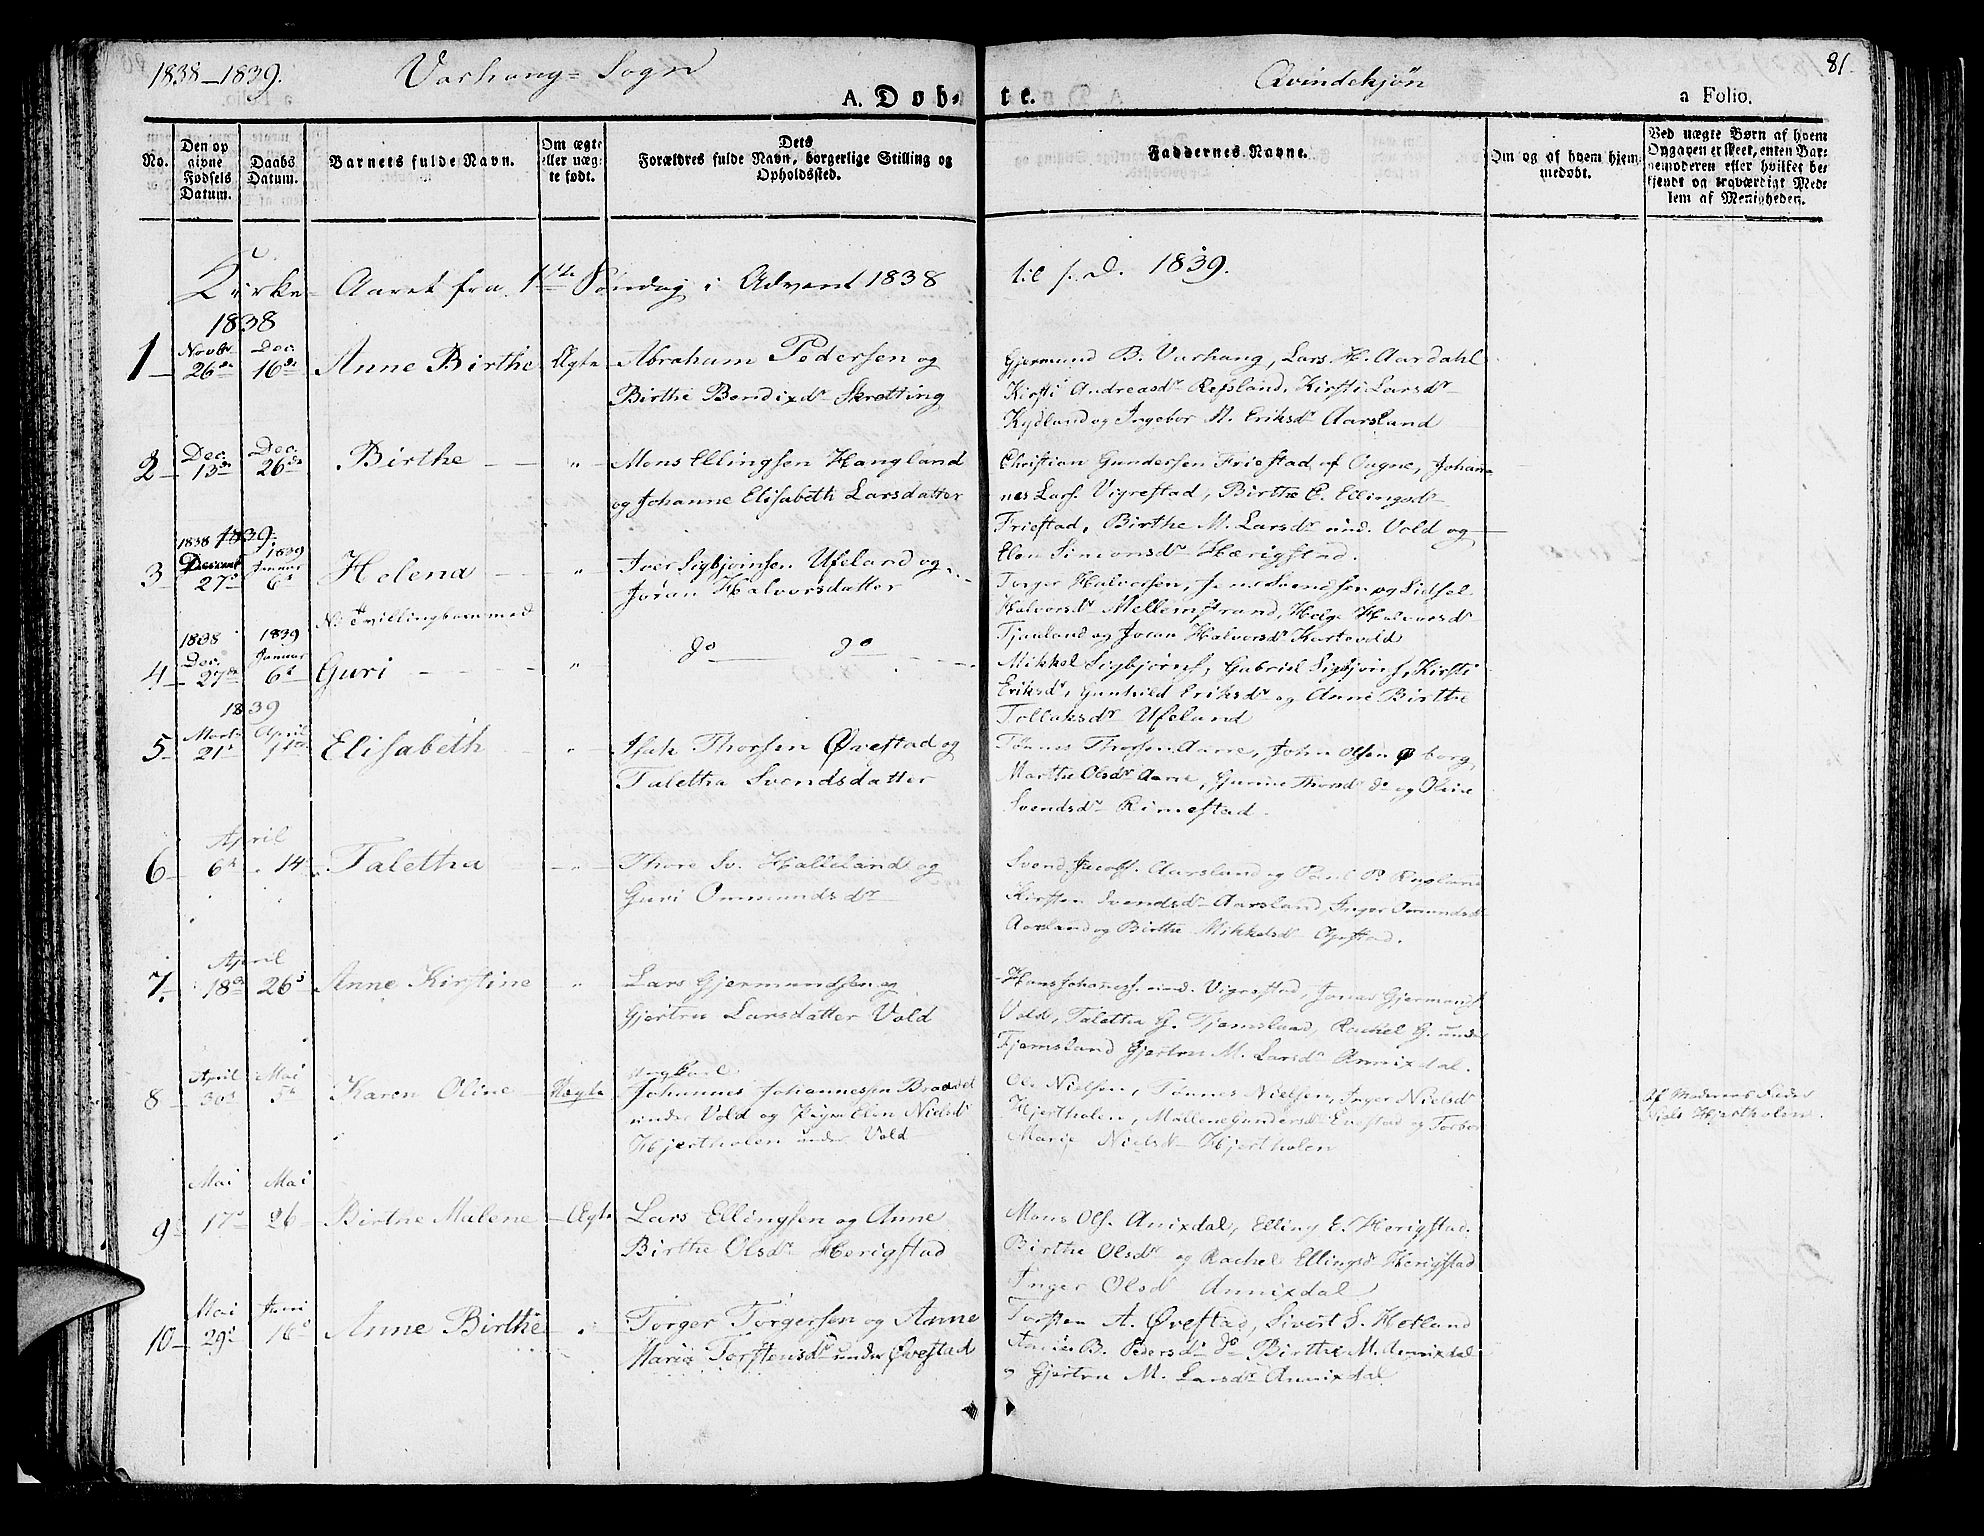 1838-1839. Varhoug- Sogn Qvindekjøn 81.
A. Døb- te. a Folio.
No.
Den op
givne
Fødsels
Datum.
Daabs
Datum.
Barnets fulde Navn.
Om ægte
eller uæg-
te født.
Dets
Forældres fulde Navn, borgerlige Stilling og
Opholdssted.
Faddernes Navne.
Om og af hvem hjem-
medøbt.
Ved uægte Børn af hvem
Opgaven er skeet, enten Bar-
nemoderen eller hvilket be-
kjendt og troværdigt Med-
lem af Menigheden.
Kirke-Aaret fra 1ste Søndag i Advent 1838 til s. D. 1839.
1838
1 Novbr 26de Dec. 16de Anne Birthe Ægte Abraham Pedersen og
Birthe Bendixdr Skretting
Gjermund B. Varhoug, Lars H. Aardahl
Kirsti Andreasdr Refsland, Kirsti Larsdr
Kydland og Ingebor M. Eriksdr Aarsland
2 Dec. 13de Dec. 26de Birthe " Mons Ellingsen Haugland
og Johanne Elisabeth Larsdatter
Christian Gundersen Friestad af Ougne, Johan-
nes Lars. Vigrestad, Birthe E. Ellingsdr
Friestad, Birthe M. Larsdr und. Vold og
Elen Simonsdr Hærigstad.
1838 1839.
3 Decemb 27de 1839 Januar 6te Helena " Iver Sigbjörnsen Ufsland og
Jøran Halvorsdatter
Torger Halvorsen, Jone Svendsen og Sidsel
Halvorsdr Mellemstrand, Helge Halvorsdr
Tjemland og Joran Halvorsdr Kartevold
NB Tvillingbarn med
4 1838 Dec. 27de 1839 Januar 6te Guri " do do
Mikkel Sigbjørns., Gabriel Sigbjörns., Kirsti
Eriksdr, Gunhild Eriksdr og Anne Birthe
Tollaksdr Ufsland
1839
5 Marts 21de April 1ste Elisabeth " Isak Thorsen Øvestad og
Taletha Svendsdatter
Tønnes Thorsen Aarre, John Olsen borg,
Marthe Olsdr Aarre, Gurine Thorsdr do og Oline
Svendsdr Rimestad.
6 April 6te 14 Taletha " Thore Sv. Halleland og
Guri Ommundsdr
Svend Jacobs. Aarsland og Poul P.
Kirsten Svendsdr Aarsland, Inger Omundsdr
Aarsland og Birthe Mikkelsdr
7. April 18de 26de Anne Kirstine " Lars Gjermundsen og
Gjertru Larsdatter Vold
Hans Johannes. und. Vigrestad, Jonas Gjermunds.
Vold, Taletha G. Tjemsland, Rachel G. under
Tjemsland Gjertru M. Larsdr Annixdal.
8 April 30te Mai 5te Karen Oline Uægte Ungkarl
Johannes Johannesen Braadet
under Vold og Pigen Elen Nielsdr
Hjertholen under Vold
Ole Nielsen, Tönnes Nielsen, Inger Nielsdr
Hjertholen, Mallene Gundersdr Evestad og Torbor
Marie Nielsdr Hjertholen
Af Moderens Fader
Niels Hjertholen.
9 Mai 17de Mai 26 Birthe Malene Ægte Lars Ellingsen og Anne
Birthe Olsdr Herigstad
Mons Ols. Anixdal, Elling E. Herigstad.
Birthe Olsdr og Rachel Ellingsdr Herigstad
Inger Olsdr Annixdal
10 Mai 29de Juni 16de Anne Birthe " Torger Torgersen og Anne
Maria Torstensdr under Øvestad
Torsten A. Øvestad, Sivert S. Hetland
B. Pedersdr do Birthe M. Annixdal
og Gjertru M. Larsdr Annixdal